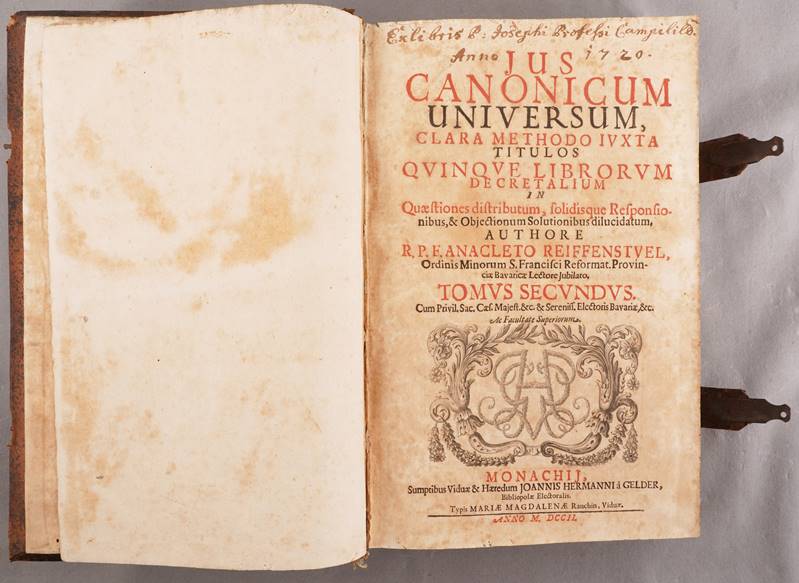 Ex libris P: Josephi Professi Campilil.
Anno 1720.
JUS
CANONICUM
UNIVERSUM,
CLARA METHODO IVXTA
TITULOS
QVINQVE LIBRORVM
DECRETALIUM
IN
Quæstiones distributum, solidisque Responsio-
nibus, & Objectionum Solutionibus dilucidatum,
AUTHORE
R. P. F. ANACLETO REIFFENSTVEL,
Ordinis Minorum S. Francisci Reformat. Provin-
ciæ Bavaricæ Lectore Jubilato,
TOMVS SECVNDVS.
Cum Privil. Sac. Cæs. Majest. &c. & Sereniss. Electoris Bavariæ, &c.
Ac Facultate Superiorum.
MONACHIJ,
Sumptibus Viduæ & Hæredum JOANNIS HERMANNI à GELDER,
Bibliopolæ Electoralis.
Typis MARIÆ MAGDALENÆ Rauchin, Viduæ.
ANNO M. DCCII.